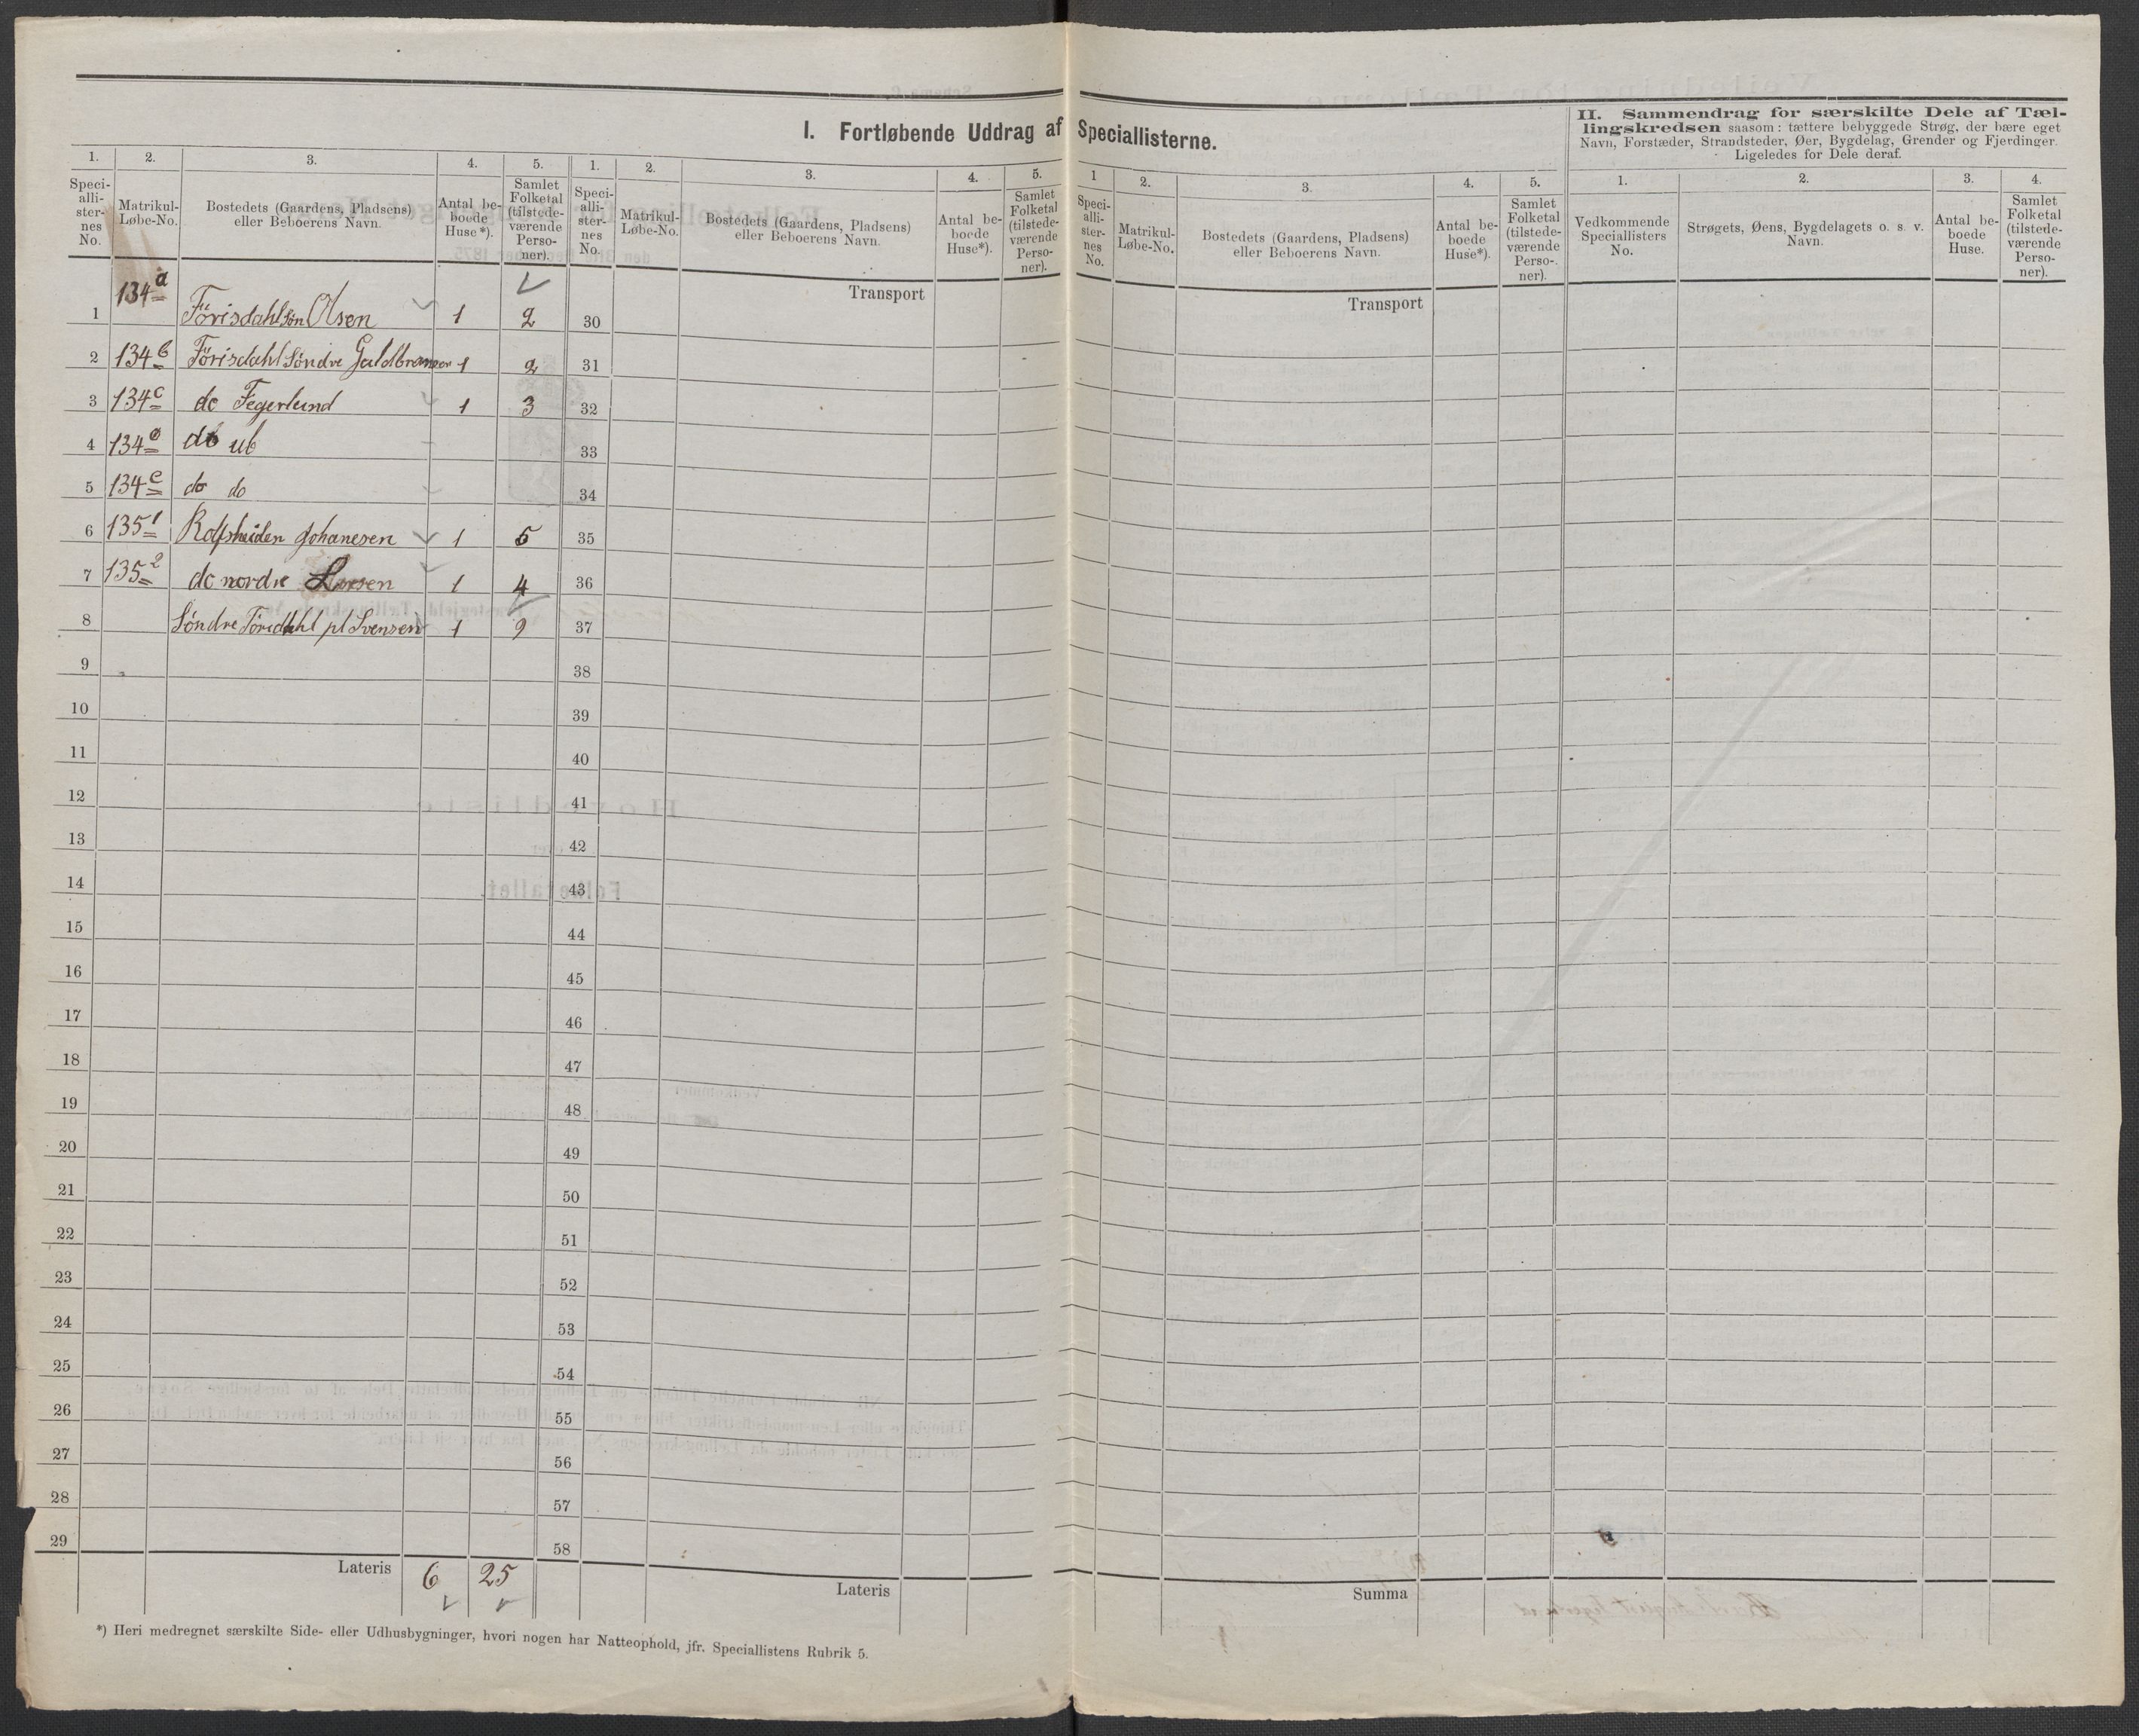 I. Fortløbende Uddrag af Speciallisterne.
II. Sammendrag for særskilte Dele af Tællingskredsen saasom: tættere bebyggede Strøg, der bære eget
Navn, Forstæder, Strandsteder, Øer, Bygdelag, Grender og Fjerdinger.
Ligeledes for Dele deraf.
1. 2. 3. 4. 5.
Speciallisternes No. Matrikul-Løbe-No. Bostedets (Gaardens, Pladsens) eller Beboerens Navn. Antal beboede Huse*). Samlet Folketal (tilstedeværende Personer).
1 134a Förisdahl Søn Olsen 1 2
2 134b Förisdahl Søndre Guldbransen 1 2
3 134c do Fegerlund 1 3
4 134d do ub
5 134e do do
6 135 1 Rolfsheiden Johanesen 1 5
7 135 2 do nordre Larsen 1 4
8 Søndre Föridahl pl Svensen 1 9
9
10
11
12
13
14
15
16
17
18
19
20
21
22
23
24
25
26
27
28
29
Lateris 6 25
*) Heri medregnet særskilte Side- eller Udhusbygninger, hvori nogen har Natteophold, jfr. Speciallistens Rubrik 5.
1. 2. 3. 4. 5.
Speciallisternes No. Matrikul-Løbe-No. Bostedets (Gaardens, Pladsens) eller Beboerens Navn. Antal beboede Huse*). Samlet Folketal (tilstedeværende Personer).
Transport
30
31
32
33
34
35
36
37
38
39
40
41
42
43
44
45
46
47
48
49
50
51
52
53
54
55
56
57
58
Lateris
1 2. 3. 4. 5.
Speciallisternes No. Matrikul-Løbe-No. Bostedets (Gaardens, Pladsens) eller Beboerens Navn. Antal beboede Huse*). Samlet Folketal (tilstedeværende Personer).
Transport
Summa
1. 2. 3. 4.
Vedkommende Speciallisters No. Strøgets, Øens, Bygdelagets o. s. v. Navn. Antal beboede Huse. Samlet Folketal (tilstedeværende Personer).